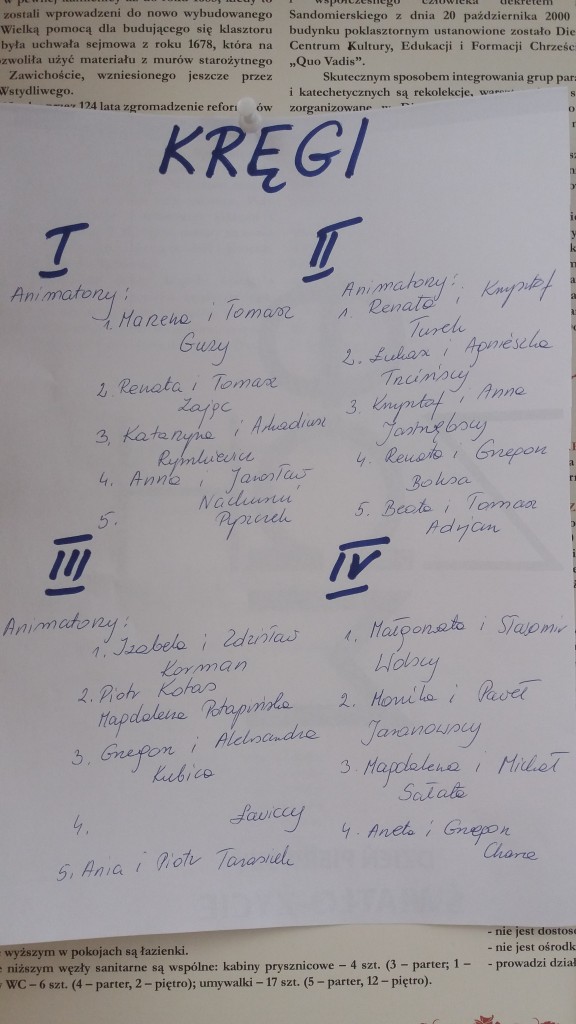 zostali wprowadzeni do nowo wybudowanego
Wielką pomocą dla budującego się klasztoru
była uchwała sejmowa z roku 1678, która na
zwoliła użyć materiału z murów starożytnego
Zawichoście, wzniesionego jeszcze przez
Wstydliwego.
124 lata zgromadzenie
współczesnego człowieka dekretem
Sandomierskiego z dnia 20 października 2000
budynku poklasztornym ustanowione zostało Die
Centrum Kultury, Edukacji i Formacji Chrześc
„Quo Vadis”.
Skutecznym sposobem integrowania grup para
i katechetycznych są rekolekcje,
zorganizowane
KRĘGI
I
Animatorzy:
1. Marzena i Tomasz
Guzy
2. Renata i Tomasz
Zając
3. Katarzyna i Arkadiusz
Rymkiewicz
4. Anna i Jarosław
5.
II
Animatorzy:
1. Renata i Krzysztof
Turek
2. Łukasz i Agnieszka
Trcińscy
3. Krzysztof i Anna
Jastrzębscy
4. Renata i Grzegorz
Boksa
5. Beata i Tomasz
Adrjan
III
Animatorzy:
1. Izabela i Zdzisław
Korman
2. Piotr Kotas
Magdalena Potapińska
3. Grzegorz i Aleksandra
Kubica
4. Ławiccy
5. Ania i Piotr Tarasiuk
IV
1. Małgorzata i Sławomir
Wolscy
2. Monika i Paweł
Jaranowscy
3. Magdalena i Michał
Sałata
4. Aneta i Grzegorz
Chara
wyższym w pokojach są łazienki.
niższym węzły sanitarne są wspólne: kabiny prysznicowe – 4 szt. (3 – parter; 1 –
WC – 6 szt. (4 – parter, 2 – piętro); umywalki – 17 szt. (5 – parter, 12 – piętro).
- nie jest dostoso
- nie jest ośrodk
- prowadzi dział